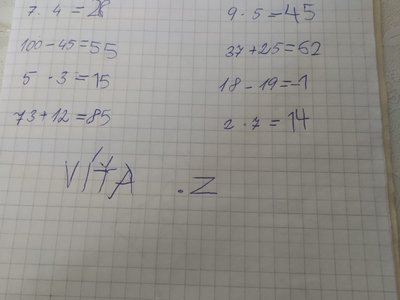 7 · 4 = 28 9 · 5 = 45
100 - 45 = 55 37 + 25 = 62
5 · 3 = 15 18 - 19 = -1
73 + 12 = 85 2 · 7 = 14
VITA .Z